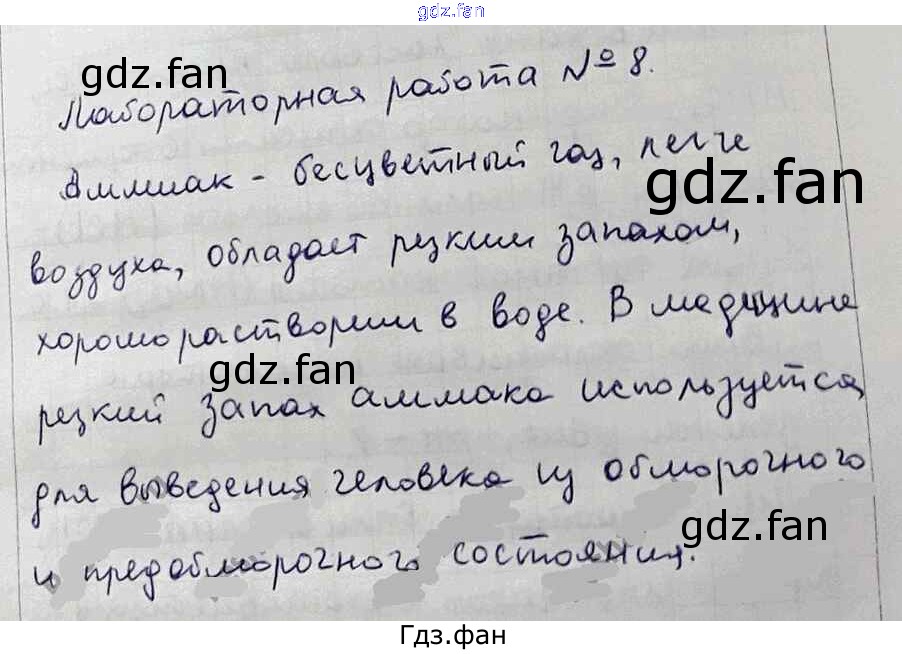 gdz.fan
gdz.fan
Лабораторная работа №8.
Аммиак - бесцветный газ, легче
gdz.fan
воздуха, обладает резким запахом,
хорошо растворим в воде. В медицине
gdz.fan
резкий запах аммиака используется
для выведения человека из обморочного
gdz.fan
и предобморочного состояния.
Гдз.фан